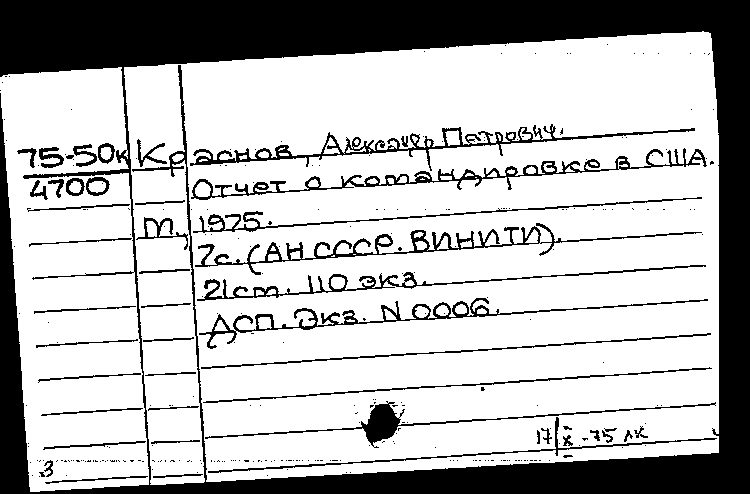 75-50к Краснов, Александр Петрович.
4700 Отчет о командировке в США.
М., 1975.
7с. (АН СССР. ВИНИТИ).
21см. 110 экз.
ДСП. Экз. N 0006.
17/X-75 лк
3